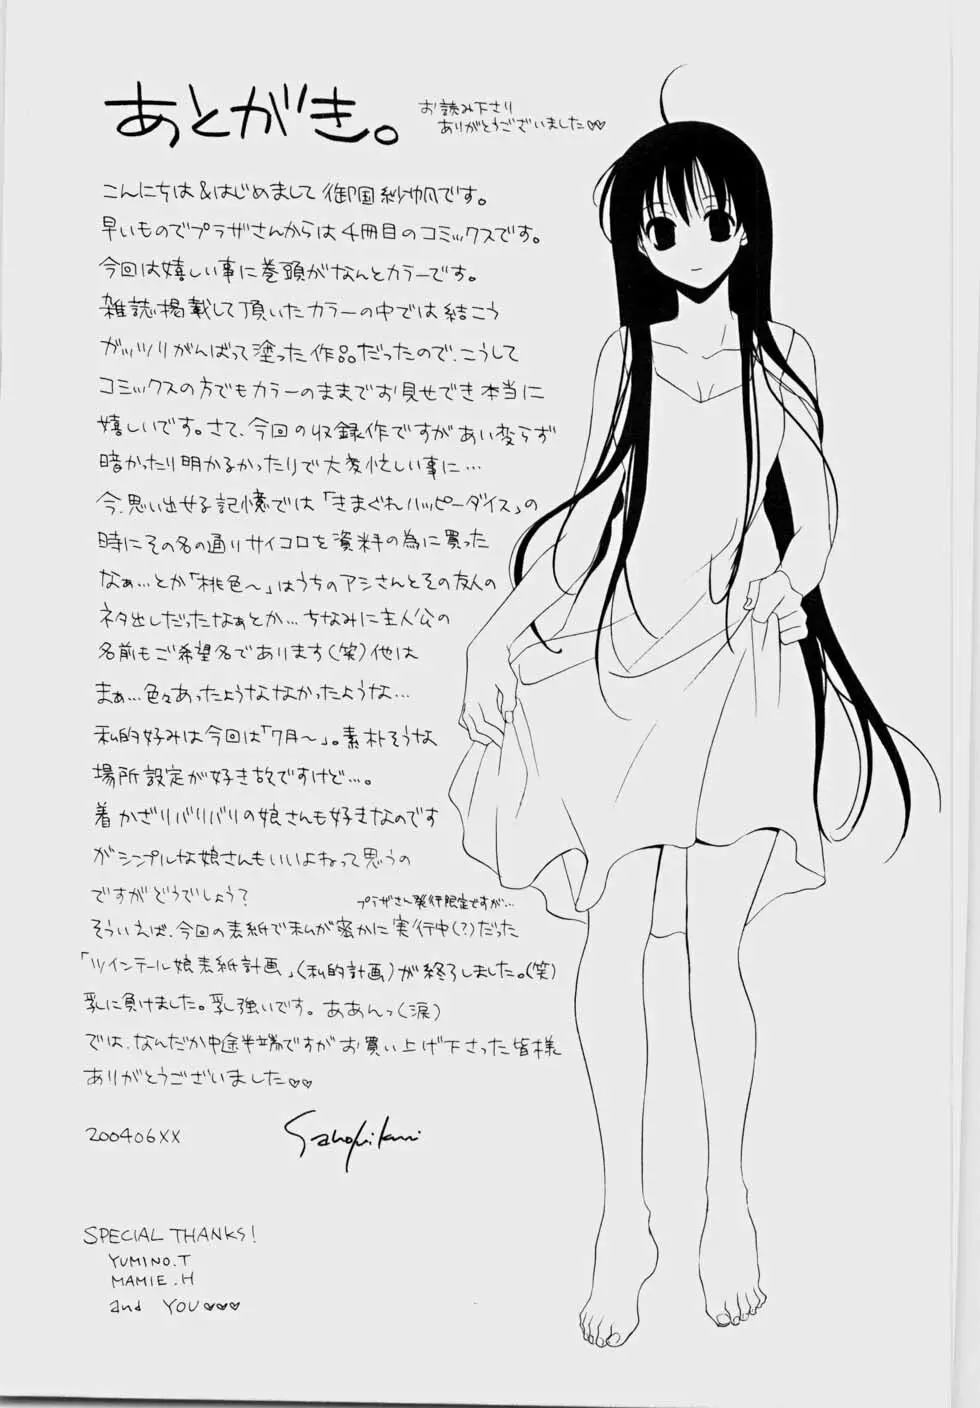 あとがき。
お読み下さり
ありがとうございました♡♡
こんにちは&はじめまして御国紗帆です。
早いものでプラザさんからは4冊目のコミックスです。
今回は嬉しい事に巻頭がなんとカラーです。
雑誌掲載して頂いたカラーの中では結こう
ガッツリがんばって塗った作品だったので、こうして
コミックスの方でもカラーのままでお見せでき本当に
嬉しいです。さて、今回の収録作ですがあい変らず
暗かったり明かるかったりで大変忙しい事に…
今、思い出せる記憶では「きまぐれハッピーダイス」の
時にその名の通りサイコロを資料の為に買った
なぁ…とか「桃色〜」はうちのアシさんとその友人の
ネタ出しだったなぁとか…ちなみに主人公の
名前もご希望名であります(笑)他は
まぁ…色々あったようななかったような…
私的好みは今回は「7月〜」。素朴そうな
場所設定が好き故ですけど…。
着かざりバリバリの娘さんも好きなのです
がシンプルな娘さんもいいよねって思うの
ですがどうでしょう?
プラザさん発行限定ですが…
そういえば、今回の表紙で私が密かに実行中(?)だった
「ツインテール娘表紙計画」(私的計画)が終了しました。(笑)
乳に負けました。乳強いです。ああんっ(涙)
では、なんだか中途半端ですがお買い上げ下さった皆様
ありがとうございました♡♡
200406XX
Sahomikuni
SPECIAL THANKS!
YUMINO.T
MAMIE.H
and YOU♡♡♡